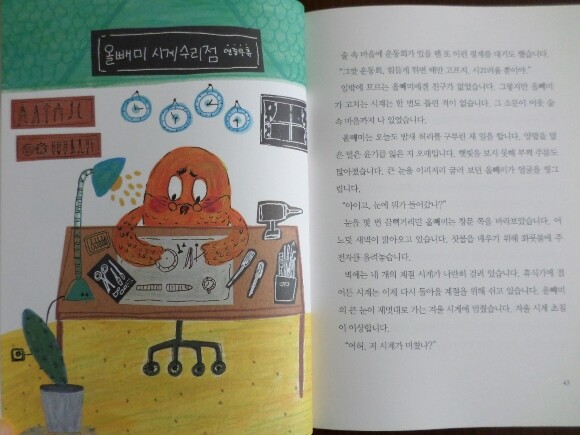 올빼미 시계 수리점
연중무휴
숲 속 마을에 운동회가 있을 땐 또 이런 핑계를 대기도 했습니다.
"그깟 운동회, 힘들게 뛰면 배만 고프지, 시끄러울 뿐이야."
일밖에 모르는 올빼미에겐 친구가 없었습니다. 그렇지만 올빼미
가 고치는 시계는 한 번도 틀린 적이 없습니다. 그 소문이 이웃 숲
속 마을까지 나 있었습니다.
올빼미는 오늘도 밤새 허리를 구부린 채 일을 합니다. 양팔을 덮
은 털은 윤기를 잃은 지 오래입니다. 햇빛을 보지 못해 부쩍 주름도
많아졌습니다. 큰 눈을 이리저리 굴려 보던 올빼미가 얼굴을 찡그
립니다.
"아이고, 눈에 뭐가 들어갔나?"
눈을 몇 번 끔쩍거리던 올빼미는 창문 쪽을 바라보았습니다. 어
느덧 새벽이 밝아오고 있습니다. 찻물을 데우기 위해 화롯불에 주
전자를 올려놓습니다.
벽에는 네 개의 계절 시계가 나란히 걸려 있습니다. 휴식기에 접
어든 시계는 이제 다시 돌아올 계절을 위해 쉬고 있습니다. 올빼미
의 큰 눈이 제멋대로 가는 겨울 시계에 멈췄습니다. 겨울 시계 초침
이 이상합니다.
"어허, 저 시계가 미쳤나?"
43